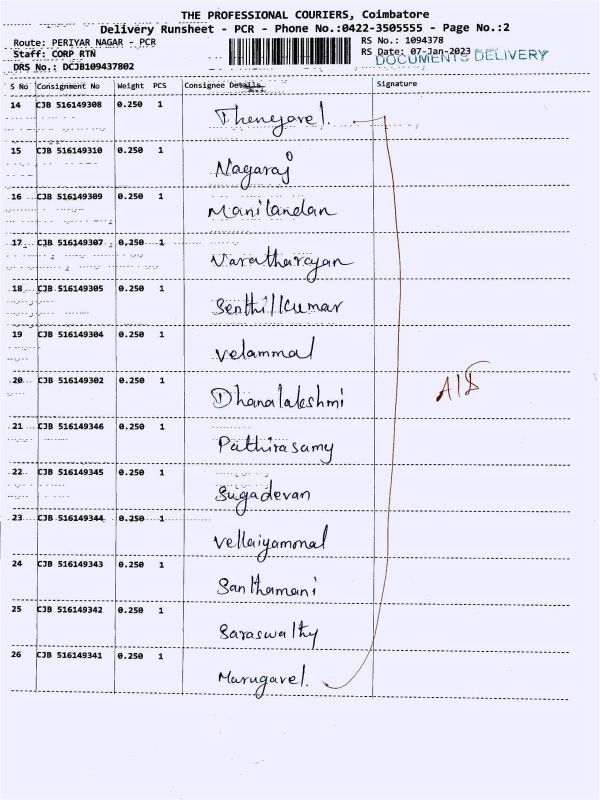 THE PROFESSIONAL COURIERS, Coimbatore
Delivery Runsheet - PCR - Phone No.:0422-3505555 - Page No.:2
Route: PERIYAR NAGAR - PCR
RS No.: 1094378
Staff: CORP RTN
RS Date: 07-Jan-2023
DOCUMENTS DELIVERY
DRS No.: DCJB109437802
S No Consignment No Weight PCS Consignee Details Signature
14 CJB 516149308 0.250 1
15 CJB 516149310 0.250 1 Nagaraj
16 CJB 516149309 0.250 1 Manilandan
17 CJB 516149307 0.250 1 Varatharajan
18 CJB 516149305 0.250 1 Senthilkumar
19 CJB 516149304 0.250 1 Velammal
20 CJB 516149302 0.250 1 Dhanalakshmi
21 CJB 516149346 0.250 1 Pathirasamy
22 CJB 516149345 0.250 1 Sugadevan
23 CJB 516149344 0.250 1 Vellaiyammal
24 CJB 516149343 0.250 1 Santhamani
25 CJB 516149342 0.250 1 Saraswathy
26 CJB 516149341 0.250 1 Marugavel.